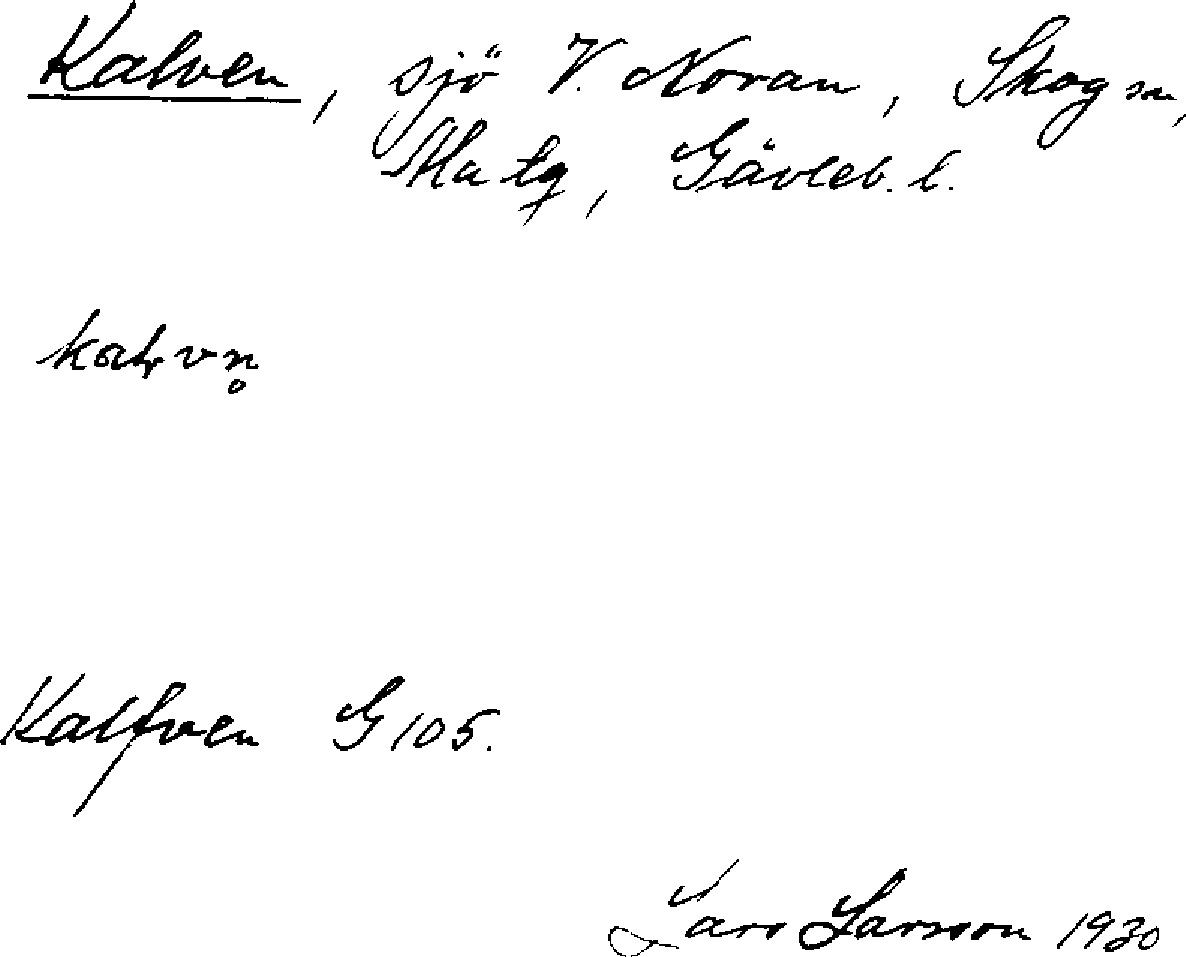 Kalven, sjö V. Noran, Skog sn,
Ala tg, Gävleb. l.
kalvn̥
Kalfven G 105.
Lars Larsson 1930